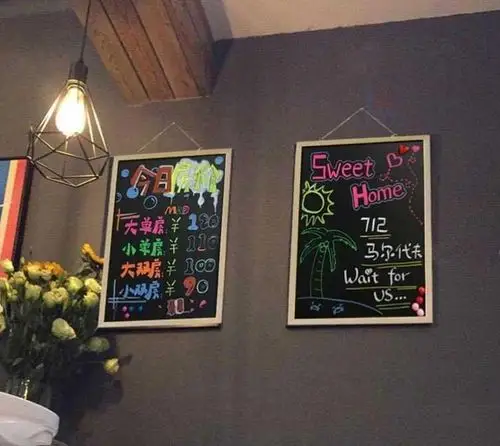 今日房价
大单房 ¥ 130
小单房 ¥ 110
大双房 ¥ 100
小双房 ¥ 90
Sweet
Home
712
马尔代夫
Wait for
us...